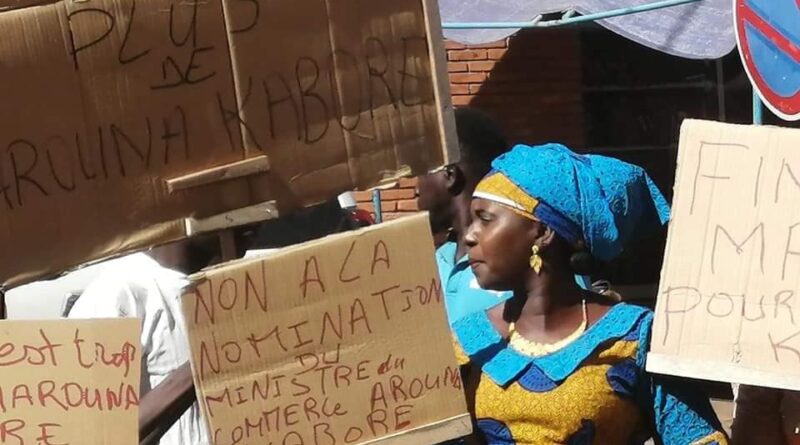 PLUS
DE
AROUNA KABORE
NON A LA
NOMINATION
DU
MINISTRE du
COMMERCE AROUNA
KABORE
est trop
MAROUNA
RE
FIN
MA
POUR
K